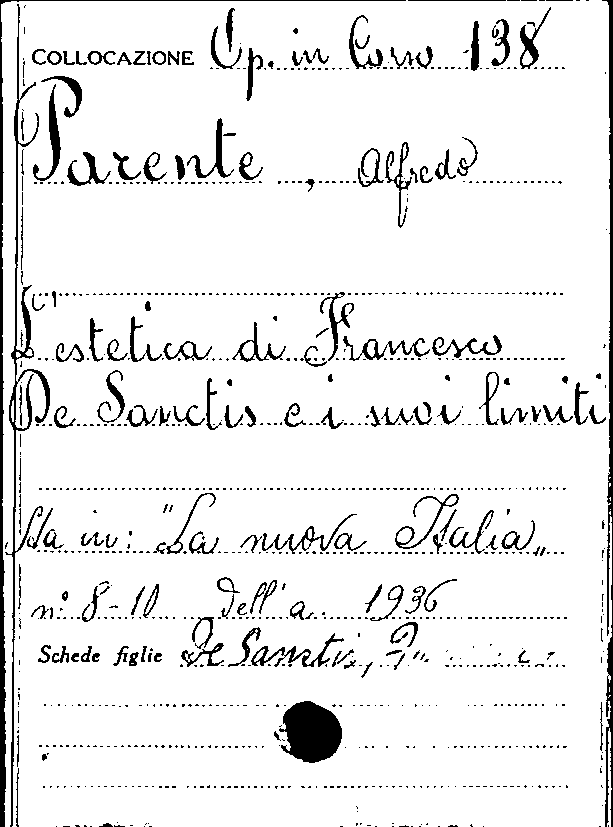 COLLOCAZIONE Op. in Corso 138
Parente, Alfredo
L'estetica di Francesco
De Sanctis e i suoi limiti
Sta in: "La nuova Italia„
n° 8-10 dell'a. 1936
Schede figlie De Sanctis,